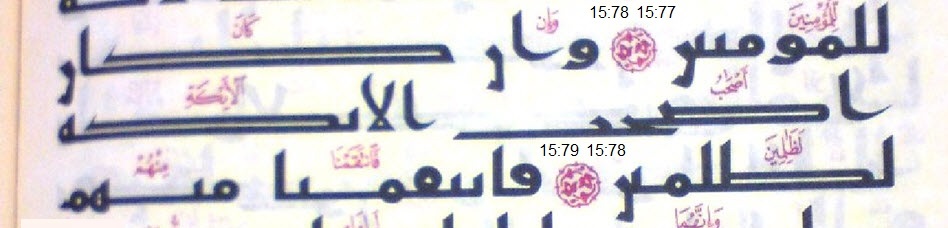 15:78 15:77
للمومنين وان
لِّلْمُؤْمِنِينَ وَإِن كَانَ
كان
اصحب الايكه
أَصْحَٰبُ ٱلْأَيْكَةِ
15:79 15:78
لظلمين فانتقمنا منهم
لَظَٰلِمِينَ فَٱنتَقَمْنَا مِنْهُمْ
وَإِنَّهُمَا